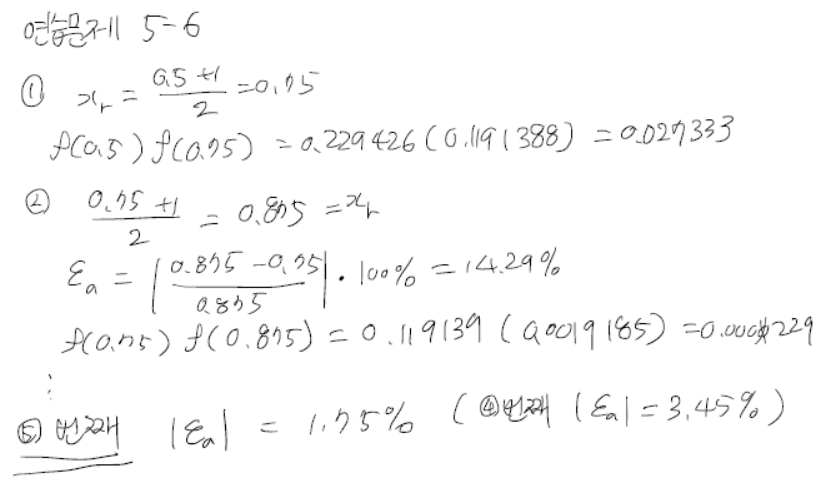 연습문제 5-6
① xᵣ = (0.5+1)/2 = 0.75
f(0.5) f(0.75) = 0.229426 (0.1191388) = 0.027333
② (0.75+1)/2 = 0.875 = xᵣ
εₐ = |(0.875-0.75)/0.875| · 100% = 14.29%
f(0.75) f(0.875) = 0.119139 (0.0019185) = 0.000229
⋮
⑤ 번째 |εₐ| = 1.75% (④번째 |εₐ| = 3.45%)